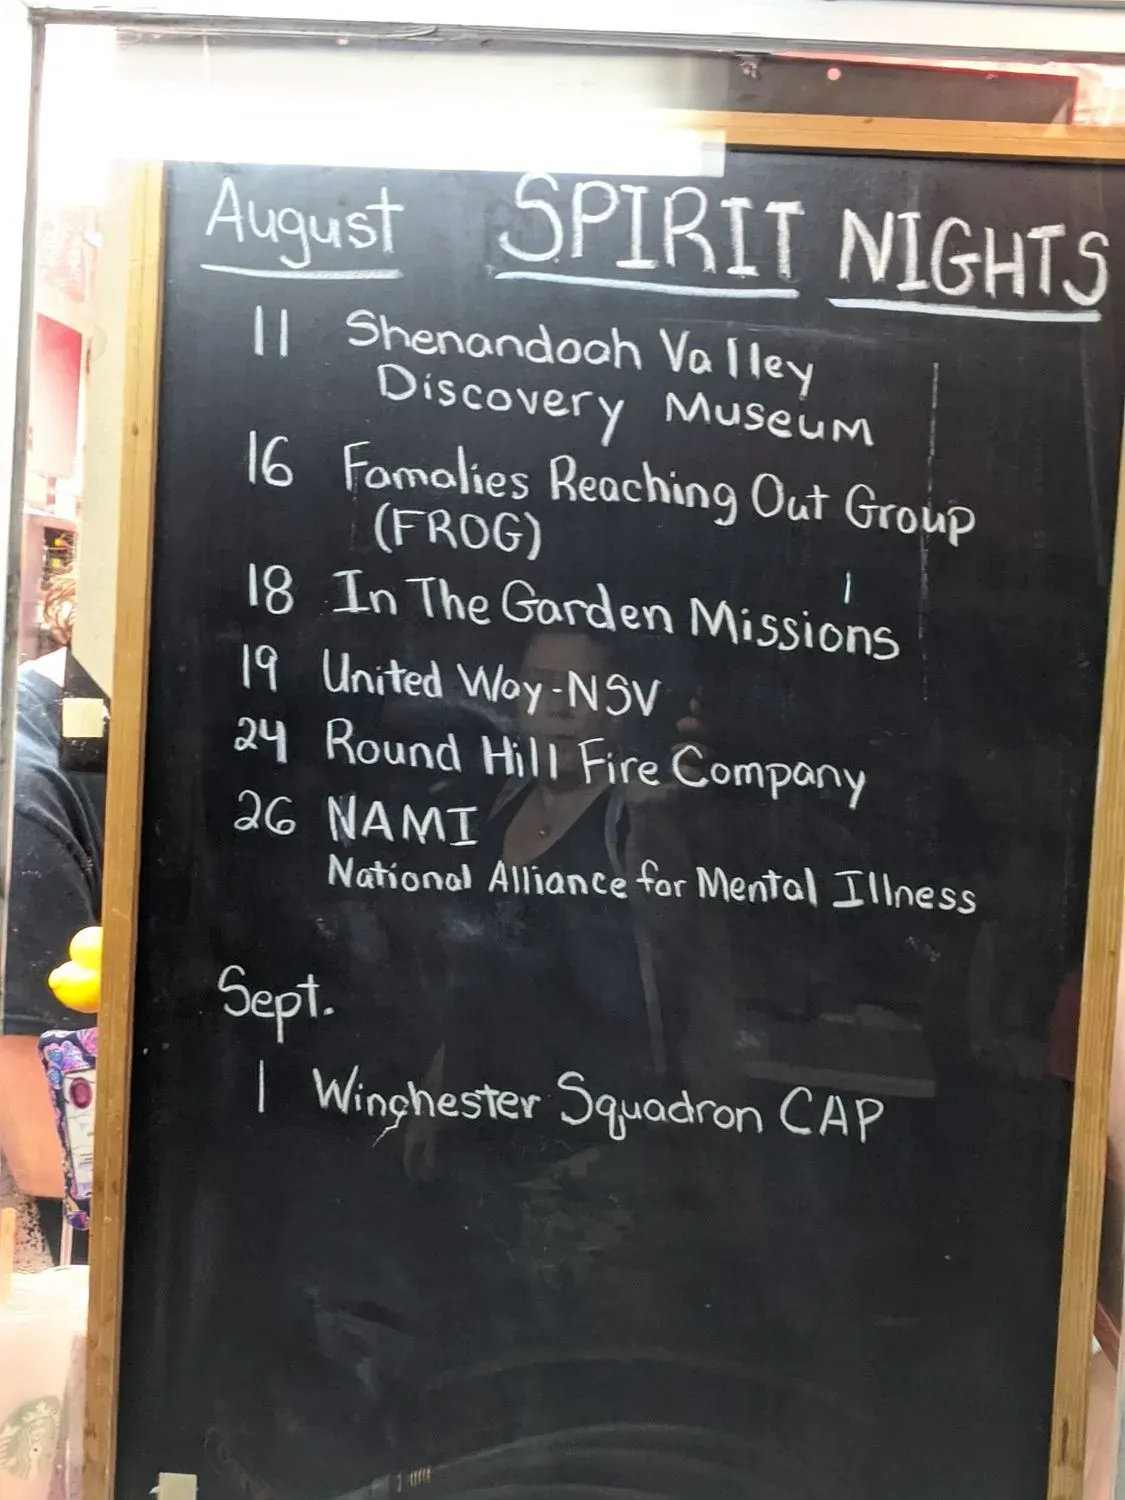 August SPIRIT NIGHTS
11 Shenandoah Valley
Discovery Museum
16 Famalies Reaching Out Group
(FROG)
18 In The Garden Missions
19 United Way-NSV
24 Round Hill Fire Company
26 NAMI
National Alliance for Mental Illness
Sept.
1 Winchester Squadron CAP